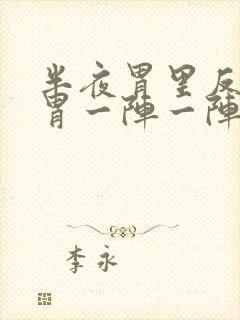 半夜胃里反
胃一阵一阵
李永